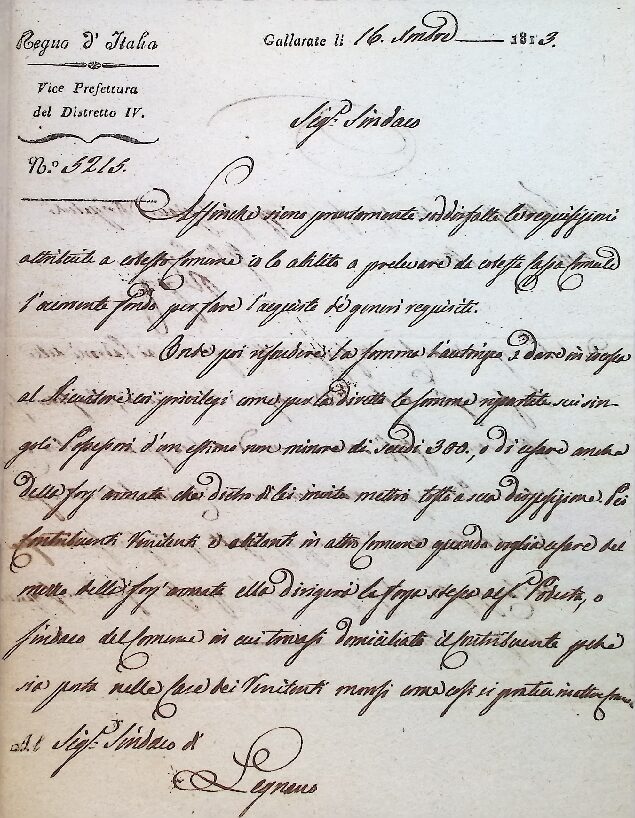 Regno d'Italia
Gallarate li 16. 9mbre 1813.
Vice Prefettura
del Distretto IV.
Sig.r Sindaco
N.o 5215.
Affinchè siano prontamente soddisfatte le requisizioni
attribuite a cotesto Comune io la abilito a prelevare da cotesta Cassa Comunale
l'occorrente fondo per fare l'acquisto de' generi requisiti.
Onde poi rifondere la somma l'autorizzo a dare in scossa
al Ricevitore coi privilegi come per la diretta le somme ripartite sui sin-
goli Possessori d'un estimo non minore di Scudi 300, o di usare anche
della forz'armata che dietro di lei invito metterò tosto a sua disposizione. Pei
Contribuenti Renitenti e abitanti in altro Comune quando voglia usare del
mezzo della forz'armata ella dirigerà la forza stessa al S.r Podestà, o
Sindaco del Comune in cui trovasi domiciliato il Contribuente perchè
sia posta nelle Case dei Renitenti morosi come così si pratica in altre
Al Sig.r Sindaco di
Legnano